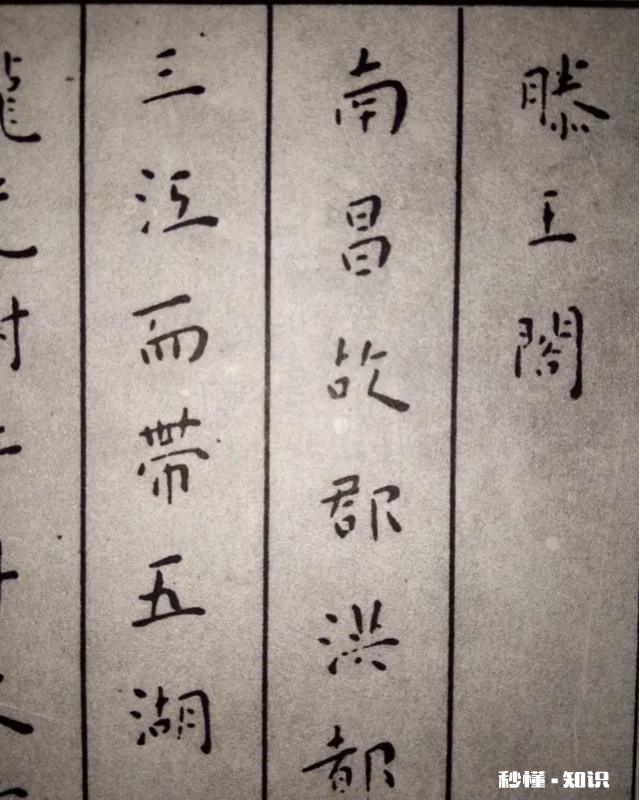 滕王閣
南昌故郡洪都
三江而帶五湖
龍光射
秒懂·知识